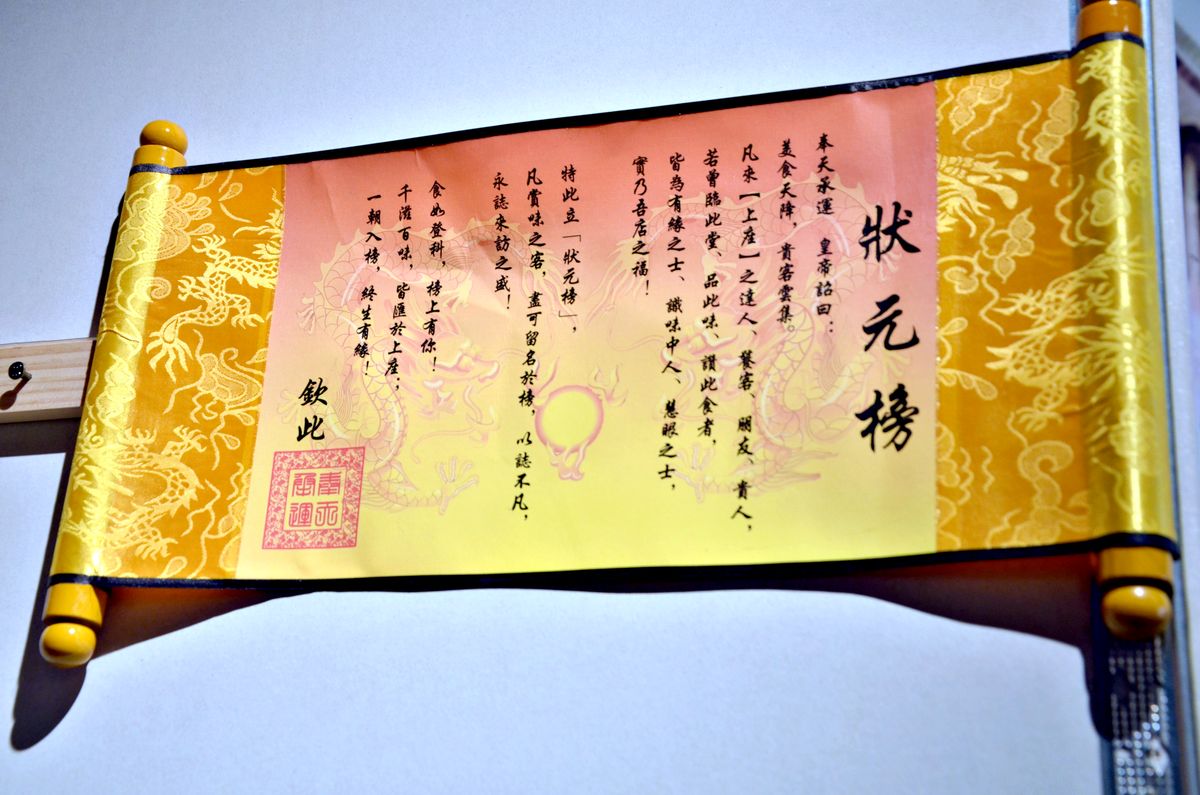 狀元榜
奉天承運　皇帝詔曰：
美食天降，貴客雲集。
凡來【上座】之達人、饕客、朋友、貴人，
若曾臨此堂、品此味、讚此食者，
皆為有緣之士、識味中人、慧眼之士，
實乃吾店之福！
特此立「狀元榜」，
凡賞味之客，盡可留名於榜，以誌不凡，
永誌來訪之盛！
食如登科，榜上有你！
千滋百味，皆匯於上座；
一朝入榜，終生有緣！
欽此
奉天
承運